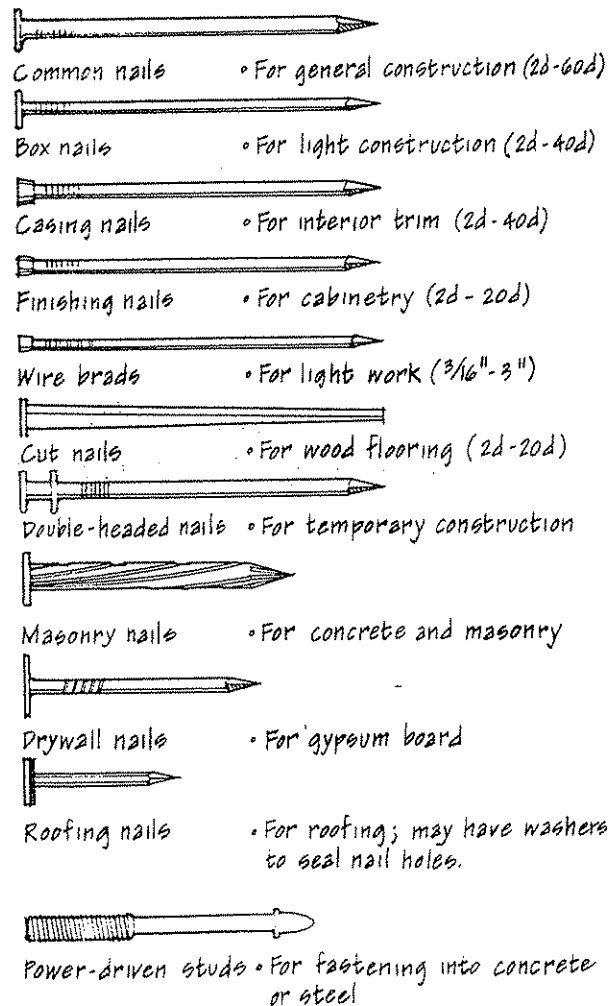 Common nails • For general construction (2d-60d)
Box nails • For light construction (2d-40d)
Casing nails • For interior trim (2d-40d)
Finishing nails • For cabinetry (2d-20d)
Wire brads • For light work (3/16"-3")
Cut nails • For wood flooring (2d-20d)
Double-headed nails • For temporary construction
Masonry nails • For concrete and masonry
Drywall nails • For gypsum board
Roofing nails • For roofing; may have washers
to seal nail holes.
Power-driven studs • For fastening into concrete
or steel